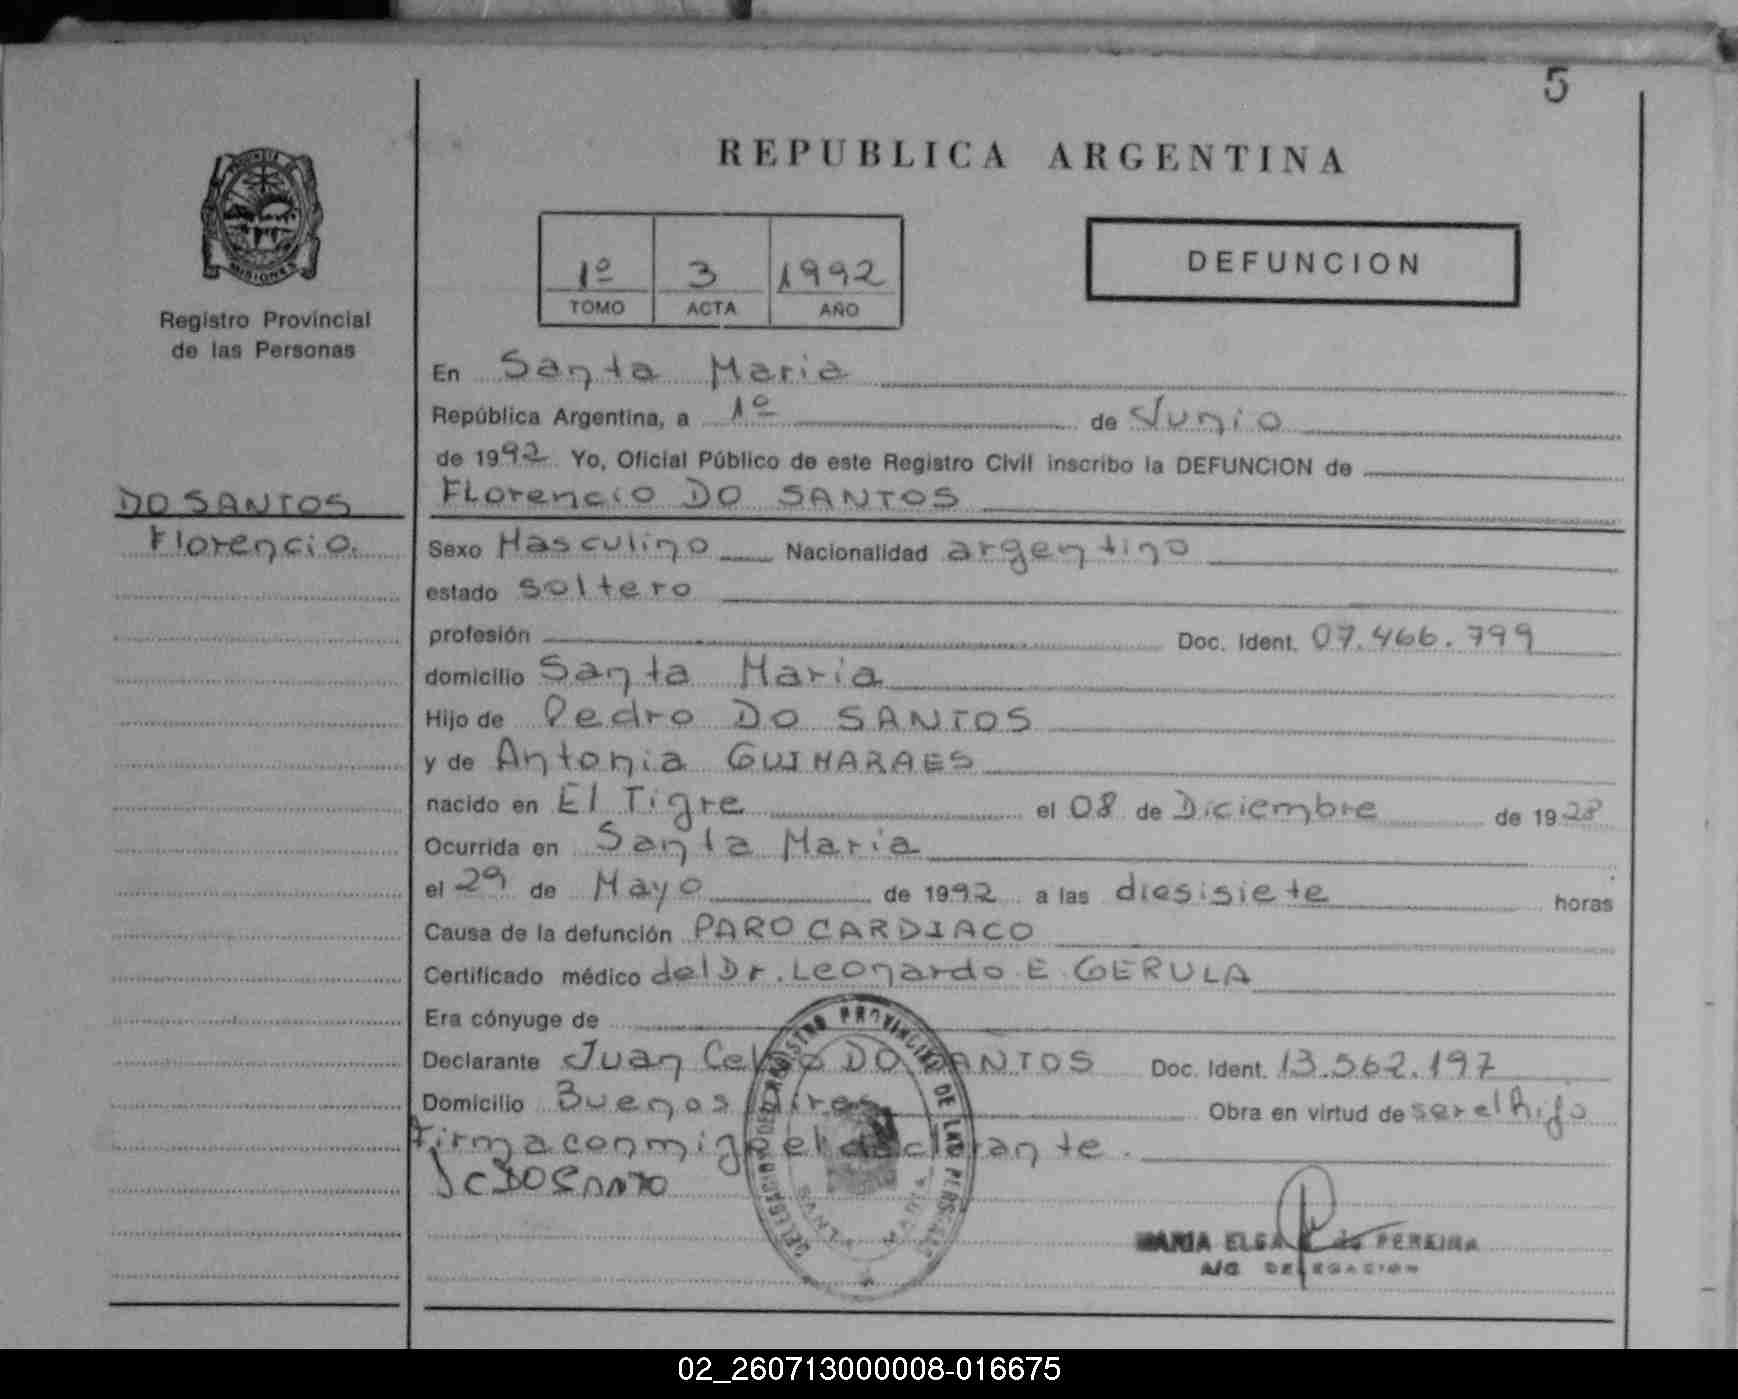 5
REPUBLICA ARGENTINA
MISIONES
Registro Provincial
de las Personas
1º 3 1992
TOMO ACTA AÑO
DEFUNCION
En Santa Maria
República Argentina, a 1º de Junio
de 1992 Yo, Oficial Público de este Registro Civil inscribo la DEFUNCION de
DO SANTOS
Florencio.
Florencio DO SANTOS
Sexo Masculino Nacionalidad argentino
estado soltero
profesión Doc. Ident. 07.466.799
domicilio Santa Maria
Hijo de Pedro DO SANTOS
y de Antonia GUIMARAES
nacido en El Tigre el 08 de Diciembre de 1928
Ocurrida en Santa Maria
el 29 de Mayo de 1992 a las diesisiete horas
Causa de la defunción PARO CARDIACO
Certificado médico del Dr. Leonardo E GERULA
Era cónyuge de
Declarante Juan DO SANTOS Doc. Ident. 13.562.197
Domicilio Buenos Aires Obra en virtud de ser el hijo
Firma conmigo el declarante.
DELEGACION DEL REGISTRO PROVINCIAL DE LAS PERSONAS
SANTA MARIA
MARIA ELSA de PEREIRA
A/C DELEGACION
02_260713000008-016675